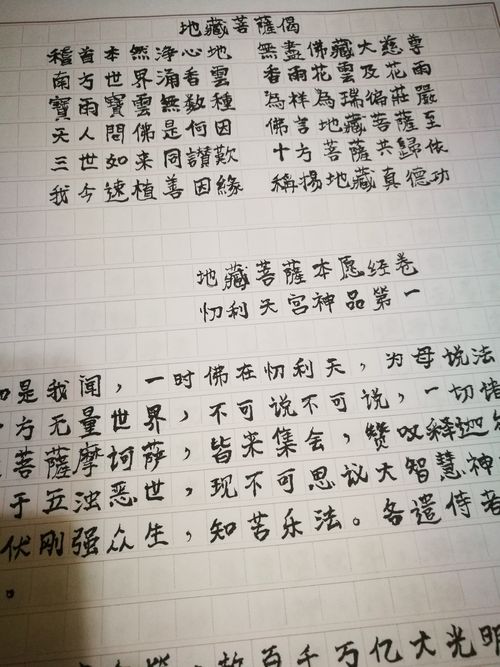 地藏菩薩偈
稽首本然淨心地 無盡佛藏大慈尊
南方世界涌香雲 香雨花雲及花雨
寶雨寶雲無數種 為祥為瑞徧莊嚴
天人問佛是何因 佛言地藏菩薩至
三世如来同讃歎 十方菩薩共歸依
我今速植善因緣 稱揚地藏真德功
地藏菩薩本愿经卷
忉利天宫神品第一
如是我闻，一时佛在忉利天，为母说法
方无量世界，不可说不可说，一切诸
菩薩摩诃萨，皆来集会，赞叹释迦
于五浊恶世，现不可思议大智慧神
伏刚强众生，知苦乐法。各遣侍者
。
百千万亿大光明